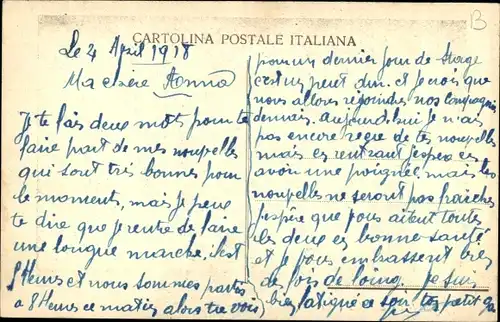 CARTOLINA POSTALE ITALIANA
B
Le 4 April 1918
Ma chère Anna
Je te fais deux mots pour te
faire part de mes nouvelles
qui sont très bonnes pour
le moment, mais je peux
te dire que je rentre de faire
une longue marche, il est
8 Heures et nous sommes partis
a 8 Heures ce matin alors tre vois
pour un dernier jour de
c'est un peut dur. et je vois que
nous allons rejoindre nos compagnies
demain. Aujourd'hui je n'ais
pas encore reçue de tes nouvelles
mais en rentrant j'espère en
avoir une poignée, mais les
nouvelles ne seront pas fraiches
j'espère que vous aitent toutes
les deux en bonne santé
et je vous embrassent bien
de loin. Je suis
bien fatigué ce soir ton petit